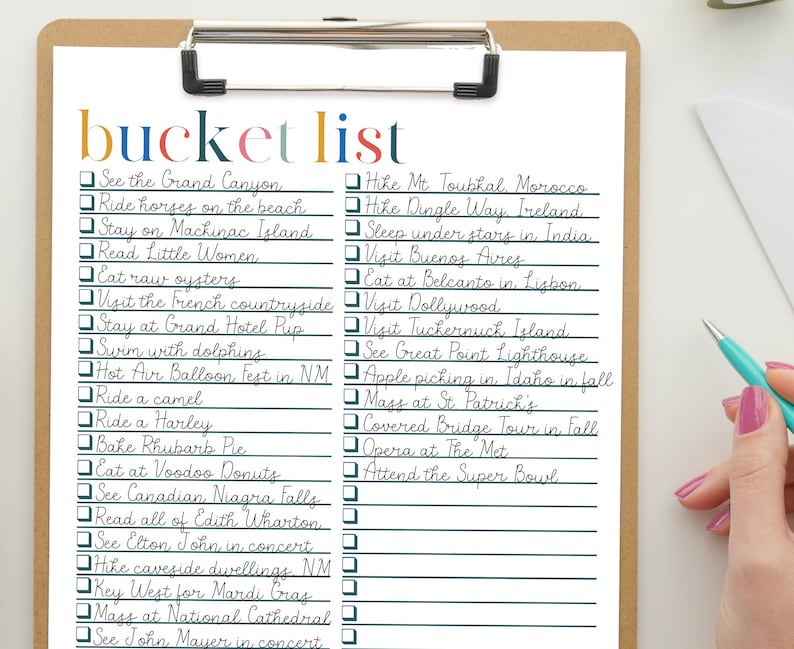 bucket list
See the Grand Canyon
Ride horses on the beach
Stay on Mackinac Island
Read Little Women
Eat raw oysters
Visit the French countryside
Stay at Grand Hotel Pup
Swim with dolphins
Hot Air Balloon Fest in NM
Ride a camel
Ride a Harley
Bake Rhubarb Pie
Eat at Voodoo Donuts
See Canadian Niagra Falls
Read all of Edith Wharton
See Elton John in concert
Hike caveside dwellings, NM
Key West for Mardi Gras
Mass at National Cathedral
See John Mayer in concert
Hike Mt. Toubkal, Morocco
Hike Dingle Way, Ireland
Sleep under stars in India
Visit Buenos Aires
Eat at Belcanto in Lisbon
Visit Dollywood
Visit Tuckernuck Island
See Great Point Lighthouse
Apple picking in Idaho in fall
Mass at St. Patrick's
Covered Bridge Tour in Fall
Opera at The Met
Attend the Super Bowl